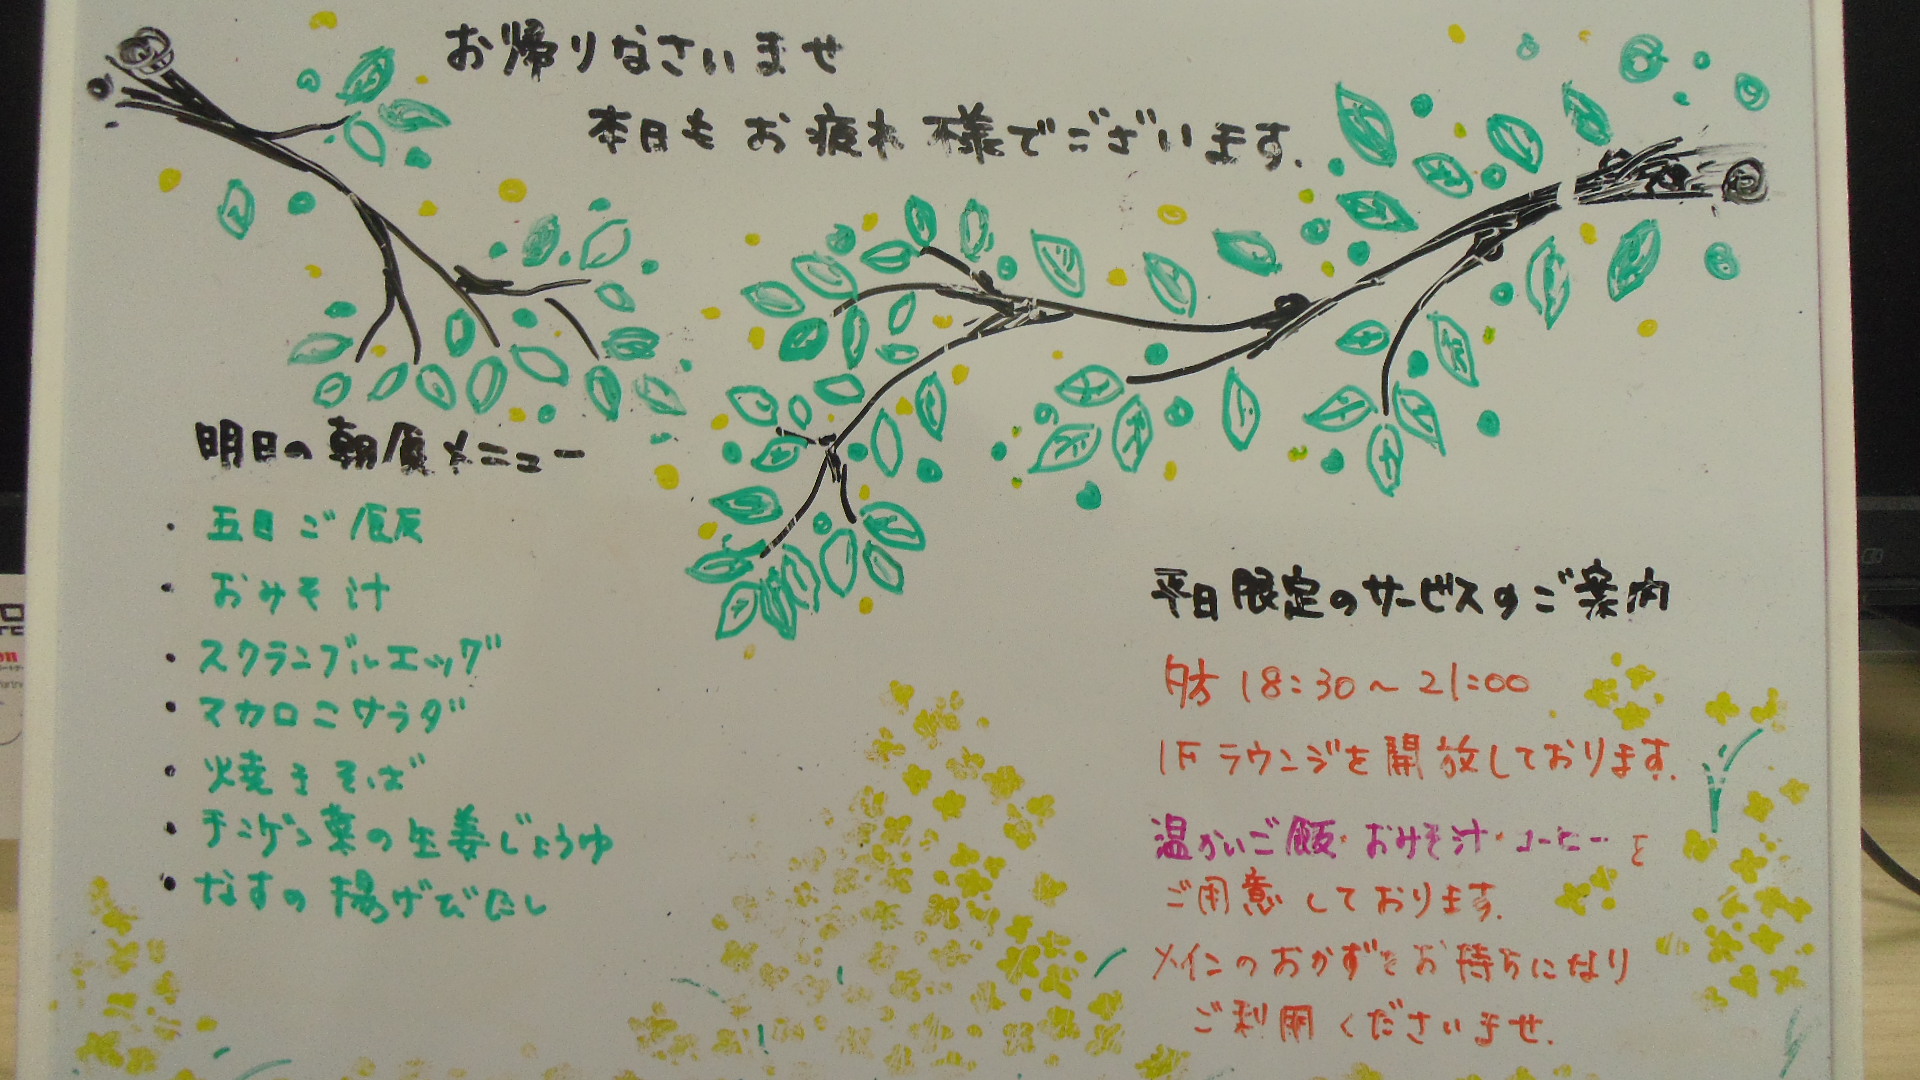 お帰りなさいませ
本日もお疲れ様でございます.
明日の朝食メニュー
・五目ご飯
・おみそ汁
・スクランブルエッグ
・マカロニサラダ
・焼きそば
・チンゲン菜の生姜じょうゆ
・なすの揚げびたし
平日限定のサービスのご案内
夕方18:30～21:00
1Fラウンジを開放しております.
温かいご飯・おみそ汁・コーヒーを
ご用意しております.
メインのおかずをお持ちになり
ご利用くださいませ.